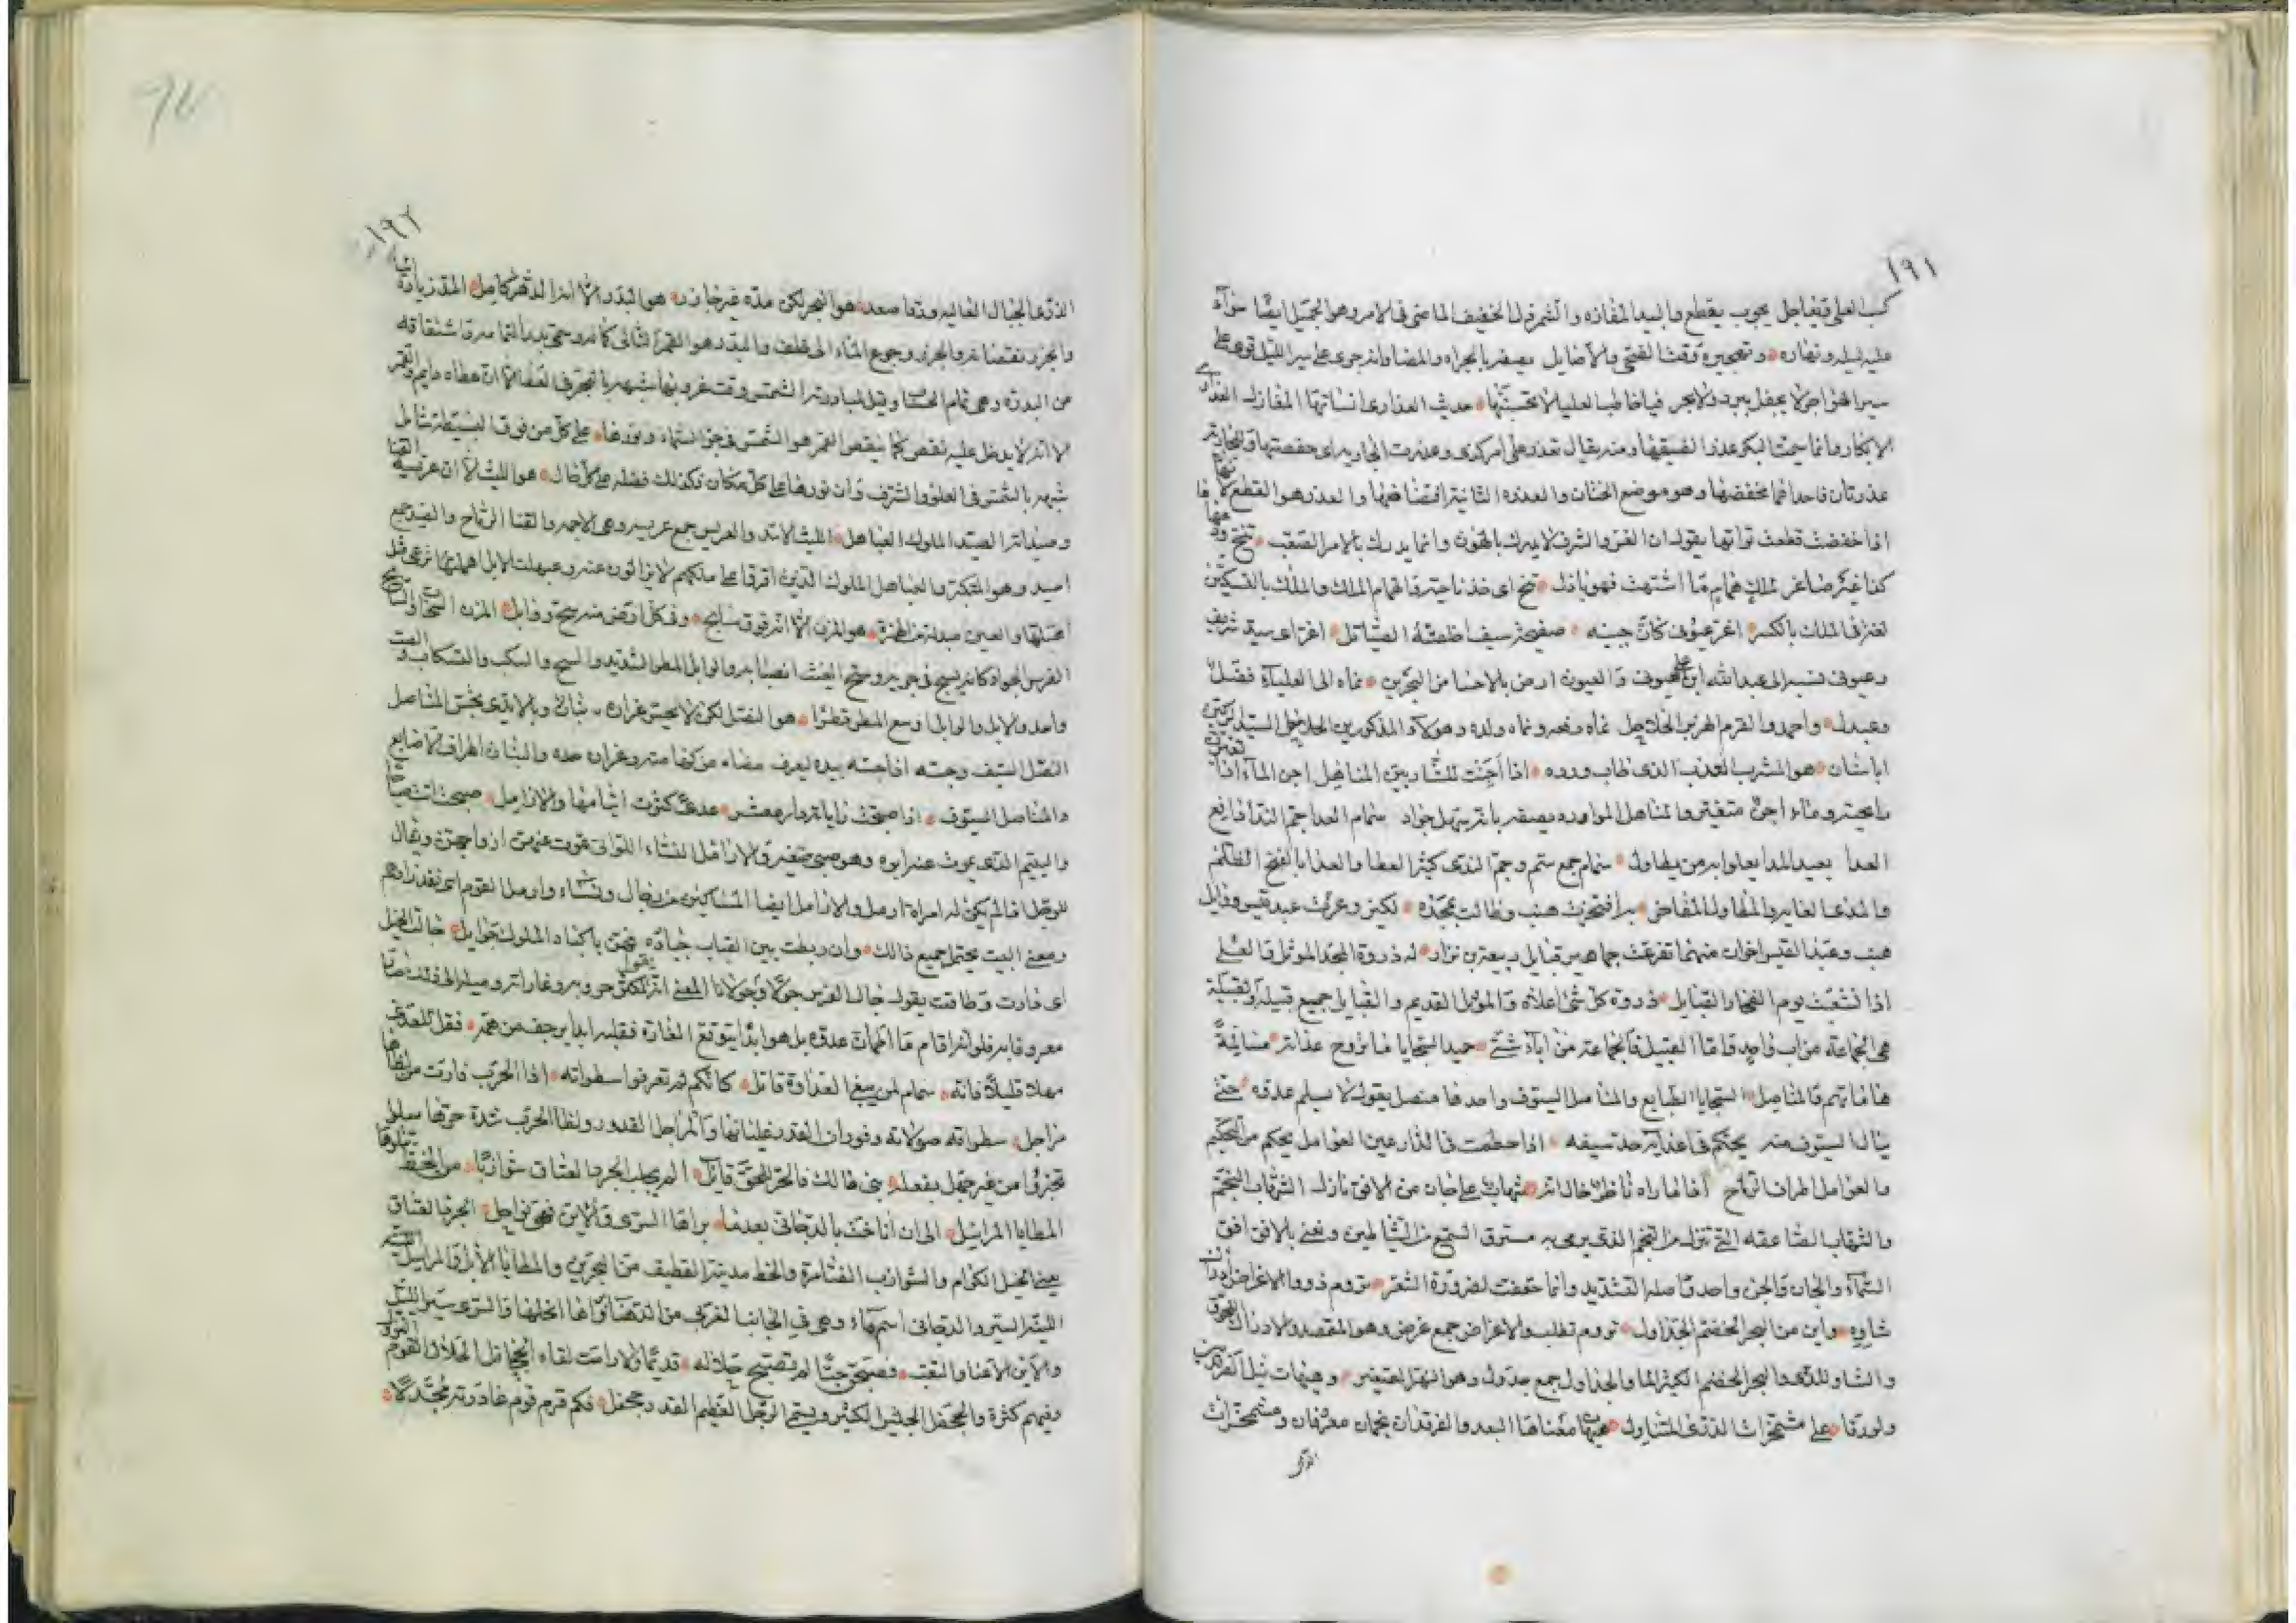 ١٩١
كسب العلى قيفاجل يجوب يقطع والبيد المفازه والشمردل الخفيف الماضى فى الامر وهو الجميل ايضا سوآء
عليه ليله ونهاره وتهجيره وقت الضحى والاصايل يصفه بالجراه والمضا وانه جرى على سير الليل قوى على
سير الهواجر لا يجفل ببرد ولا بحر فياخاطب العليا لا تحسبنها حديث العذارى انساتها المغازل العذارى
الابكار وانما سميت البكر عذرا لضيقها ومنه يقال تعذر على امر كذى وعذرت الجاريه اى خفضتها وللجاريه
عذرتان فاحداهما مخفضها وهو موضع الختان والعذره الثانية افتضاضها والعذر هو القطع
اذا خفضت قطعت نواتها يقول ان العز والشرف لا يدرك بالهون وانما يدرك بالامر الصعب تنح ود
كفا غير صاغر لملك همام مما اشتهت فهو باذل تنح اى خذ ناحية والهمام الملك والملك بالتسكين
لغة فى الملك بالكسر اغر عيوف كان جبينه صفيحة سيف اخلصته الصياقل اغر اى سيد شريف
وعيوف نسبه الى عبد الله ابن على عيوف والعيون ارض بالاحسا من البحرين نماه الى العلياء فضل
وعبدل واحمد والقرم الهزبر الحلاحل نماه رفعه ونماه ولده وهولاء المذكورين الحلاحل السيد الركين
ابا سنان هو المشرب العذب الذى طاب ورده اذا اجنت للشاربين المناهل اجن الماء اذا
رايحته وماء اجن متغير والمناهل الموارد يصفه بانه سهل جواد سمام العدا جم الندا فايع
العدا بعيد المدا يعلو به من يطاول سمام جمع سم وجم الندى كثير العطا والعدا بالفتح الظلم
والمدى الغايه والمطاول المفاخر به افتخرت هنب وطالت بمجده لكيز وعزت عبد قيس ووايل
هنب وعبد القيس اخوان منهما تفرعت جماهير قبايل ربيعة بن نزار له ذروة المجد الموثل والعلى
اذا نشعبت يوم الفخار القبايل ذروة كل شئ اعلاه والموثل القديم والقبايل جميع قبيلة والقبيلة
هى الجماعة من اب واحد واما القبيل فالجماعة من آباء شتى حميد السجايا ما تروح عداته مسالمة
هاماتهم والمناصل السجايا الطبايع والمناصل السيوف واحدها منصل يقول لا يسلم عدوه حتى
ينال السيوف منه يحكم فى اعدايه حد سيفه اذا حطمت فى الدارعين العوامل يحكم من التحكيم
والعوامل اطراف الرماح اذا ما راه ناظر خال انه شهاب على جان من الافق نازل الشهاب النجم
والشهاب الصاعقه التى تنزل من النجم الذى يرمى به مسترق السمع من الشياطين ونعنى بالافق افق
السماء والجان والجن واحد واصله التشديد وانما خففت لضرورة الشعر تروم ذووا الاغراض
شاوه واين من البحر الخضم الجداول تروم تطلب والاغراض جمع غرض وهو المقصد والادراك اللحوق
والشاو المدى والبحر الخضم الكثير الما والجداول جمع جدول وهو النهر الصغير وهيهات نيل الفرقدين
ولو رقا على مشمخرات الذرى المتناول هيهات معناها البعد والفرقدان نجمان معروفان ومشمخرات
الذرى
١٩٢
الذرى الجبال العاليه ورقا صعد هو البحر لكن مده غير جازر هو البدر الا انه الدهر كامل المد زيادة
والجزر نقصانه والجزر رجوع الماء الى خلف والبدر هو القمر الثانى كانه وحتى بدر التمامه واشتقاقه
من البدره وهى تمام الحساب وقيل لمبادرته الشمس وقت غروبها شبهه بالبحر فى العطا الا ان عطاه دايم والقمر
الا انه لا يدخل عليه نقص كما ينقص القمر هو الشمس فى جو السماء ونورها على كل من فوق البسيطة شامل
شبهه بالشمس فى العلو والشرف وان نورها على كل مكان فكذلك فضله على كل حال هو الليث الا ان عريسه القنا
وصيداته الصيد الملوك العباهل الليث الاسد والعريس جمع عريسه وهى الاجمه والقنا الرماح والصيد جمع
اصيد وهو المتكبر والعباهل الملوك الذين اقروا على ملكهم لا يزالون عنه وعبهلت الابل اهملتها ترعى مثل
ابهلتها والعين مبدلة من الهمزة هو المزن الا انه فوق سابح وفى كل ارض منه سح ووابل المزن السحاب والسابح
الفرس الجواد كانه يسبح فى جريه وسح الغيث انصبابه والوابل المطر الشديد والسح والسكب والتسكاب والصب
واحد والابل والوابل اوسع المطر قطرا هو النصل لكن لا يحس غراره بنان وبالايدى تحس المناصل
النصل السيف وحسه اذا جسه بيده ليعرف مضاه من كفامته وغراره حده والبنان اطراف الاصابع
والمناصل السيوف اذا صبحت راياته دار معشر عدى كثرت ايتامها والارامل صبحت اتت صباحا
واليتيم الذى يموت عنه ابوه وهو صبى صغير والارامل النساء اللواتى يموت عنهن ازواجهن ويقال
للرجل اذا لم يكن له امراة ارمل والارامل ايضا المساكين من رجال ونساء وارمل القوم اى نفد زادهم
ومعنى البيت يحتمل جميع ذالك وان ربطت بين القباب جياده فهن باكباد الملوك جوايل جالت الخيل
اى دارت وطافت يقول جال الفرس جولا وجولانا المعنى انه لكثرة حروبه وغاراته وميله الى ذلك صار
معروفا به فلو انه اقام ما اطمان عدوه بل هو ابدا يتوقع الغارة فقلبه ابدا يرجف من همه فقل للعدى
مهلا قليلا فانه سمام لمن يبغى العداوة قاتل كانكم لم تعرفوا سطواته اذا الحرب فارت من لظاها
مراجل سطواته صولاته وفوران القدر غليانها والمراجل القدور ولظا الحرب شدة حرها سلوا
تخبروا من غير جهل بفعله بنى مالك فالحر للحق قايل الم يجلب الجرد العتاق شوازبا من الخط يتلوها
المطايا المراسيل الى ان اناخت بالدجانى بعدما براها السرى والاين فهى نواحل الجرد العتاق
يعنى الخيل الكرام والشوازب الضامرة والخط مدينة القطيف من البحرين والمطايا الابل والمراسيل
اللينة السير والدجانى اسم ماء وهى فى الجانب الغربى من الدهنا وانما انحلها والسرى سير الليل
والاين الاعيا والتعب فصبحن حيا لم تصبح حلاله قديما ولا رامت لقاه الجحافل الحلال القوم
وفيهم كثرة والجحفل الجيش الكثير ويسمى الرجل العظيم القدر جحفل فكم قرم قوم غادرته مجدلا